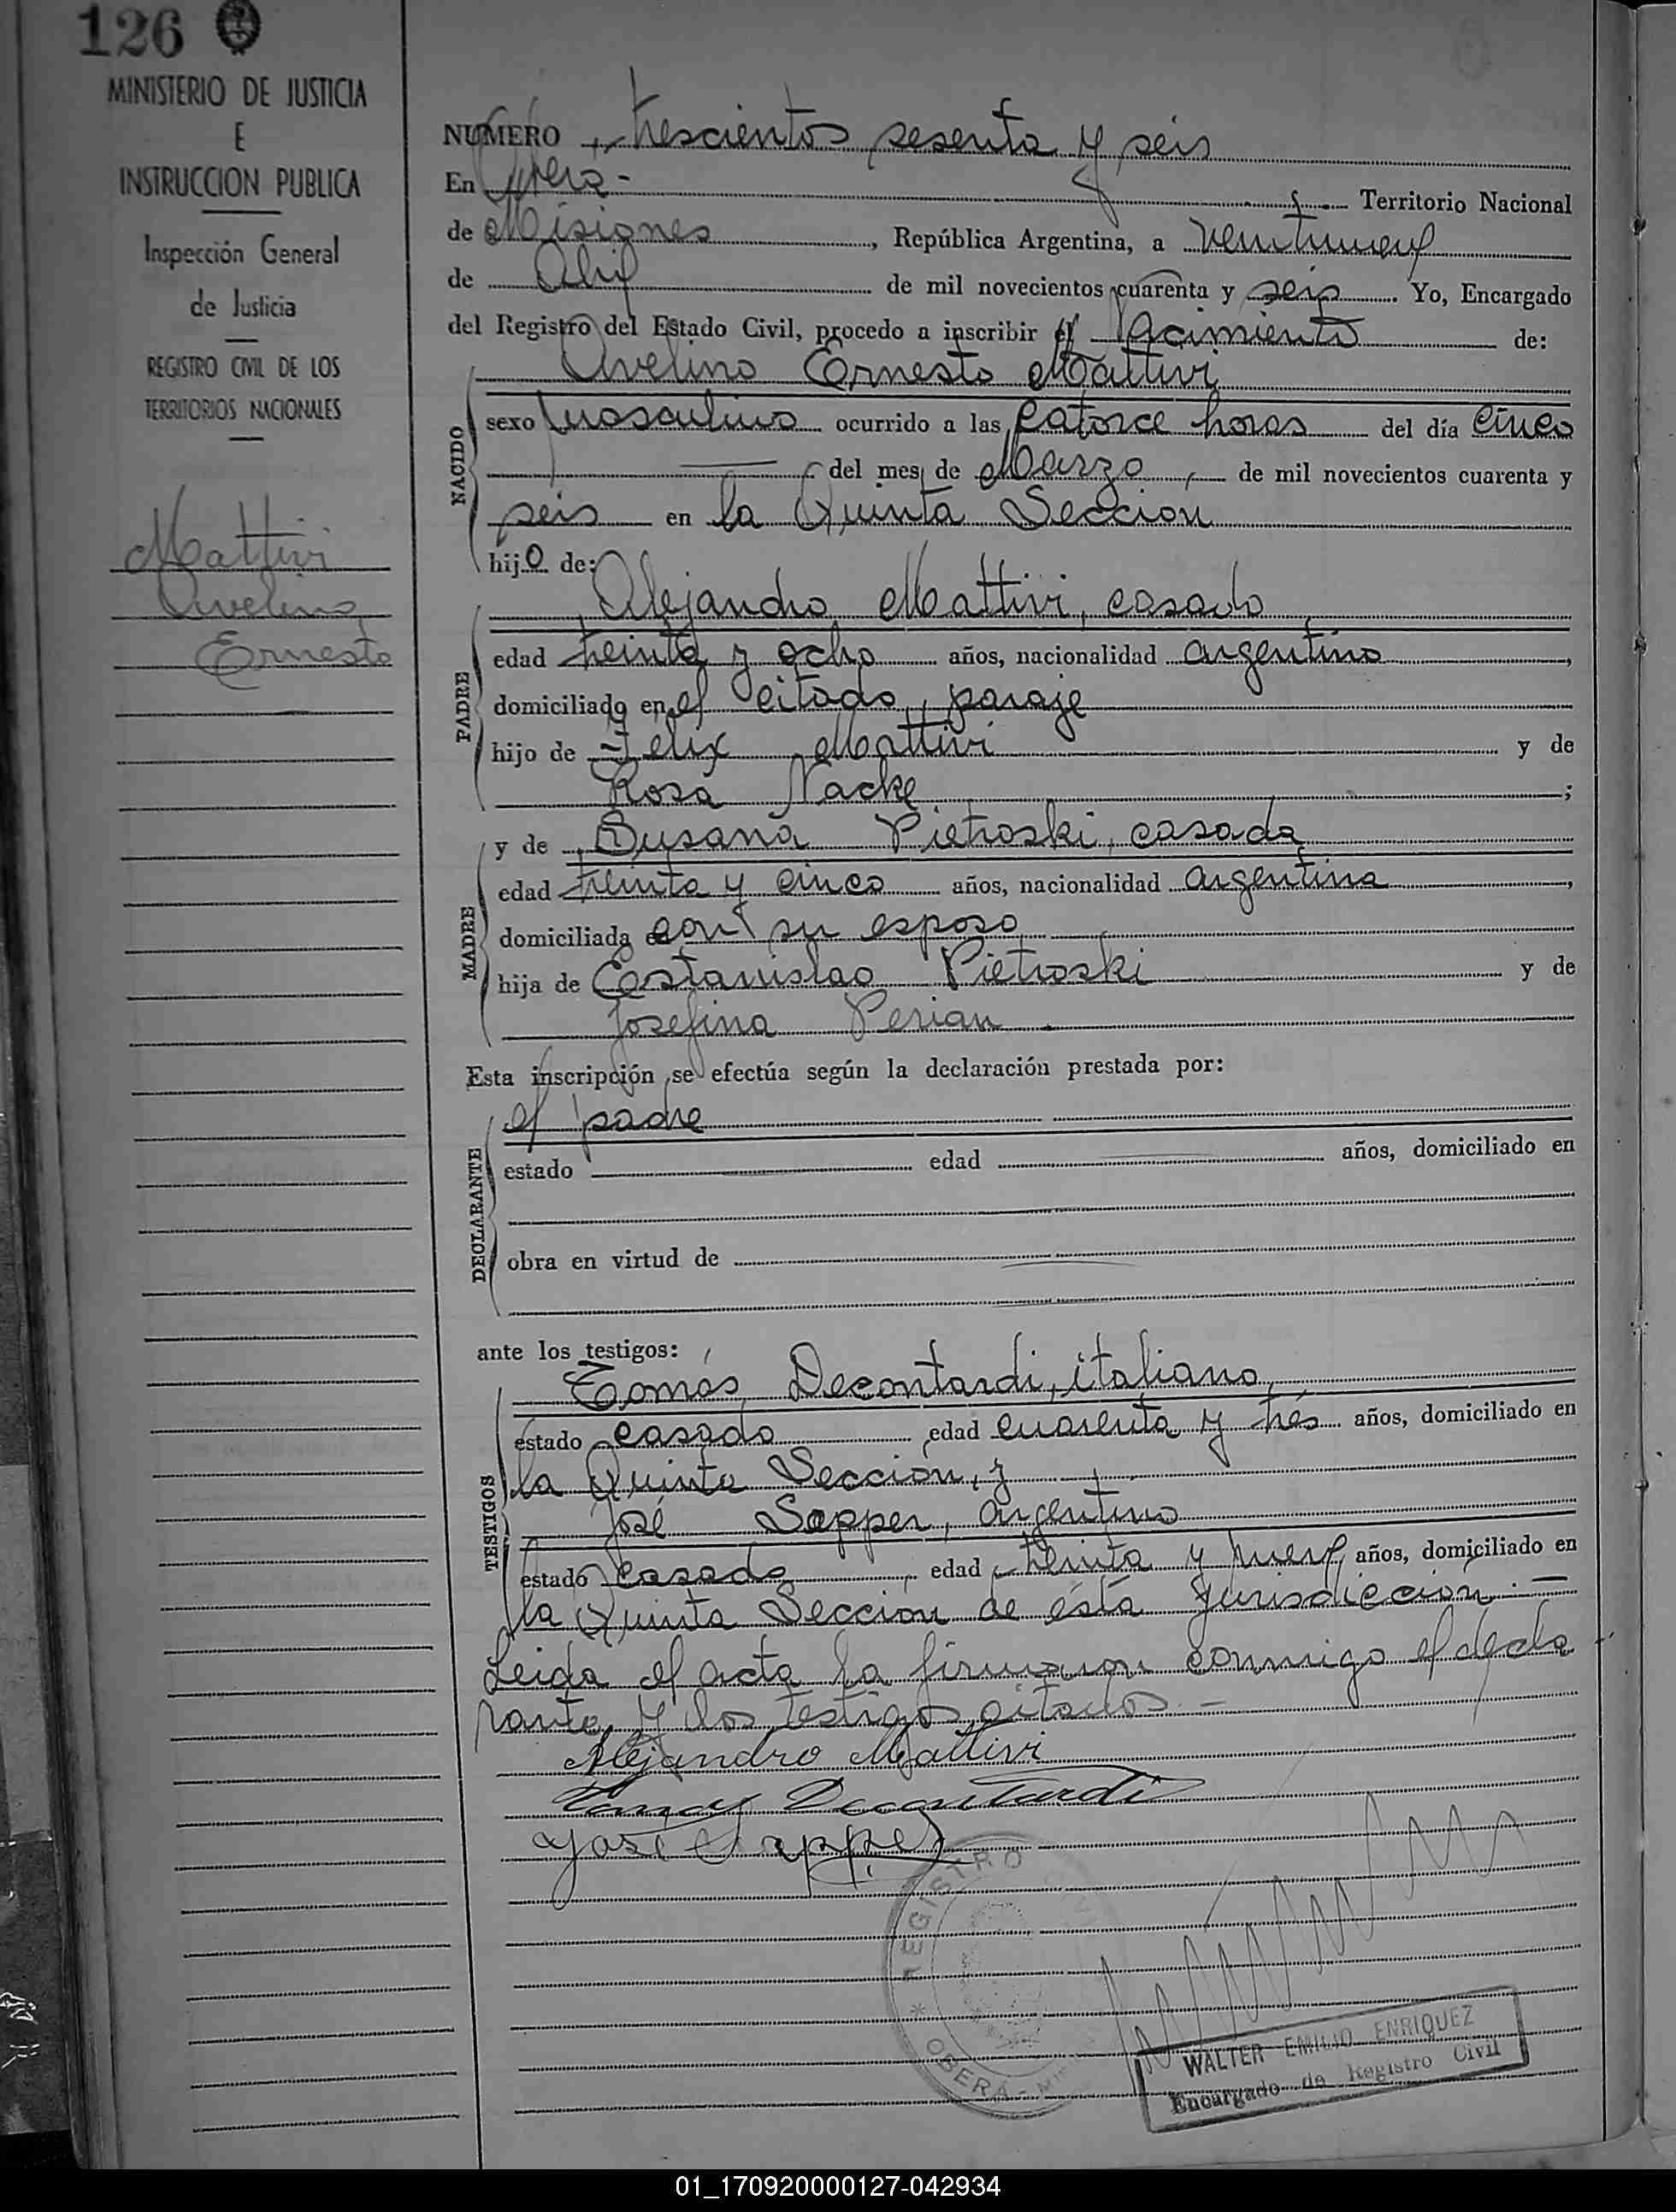 126
MINISTERIO DE JUSTICIA
E
INSTRUCCION PUBLICA
Inspección General
de Justicia
REGISTRO CIVIL DE LOS
TERRITORIOS NACIONALES
Mattivi
Avelino
Ernesto
NUMERO trescientos sesenta y seis
En Oberá - Territorio Nacional
de Misiones, República Argentina, a veintinueve
de Abril de mil novecientos cuarenta y seis. Yo, Encargado
del Registro del Estado Civil, procedo a inscribir el Nacimiento de:
Avelino Ernesto Mattivi
NACIDO
sexo masculino ocurrido a las catorce horas del día cinco
del mes de Marzo, de mil novecientos cuarenta y
seis en la Quinta Sección
hijo de:
Alejandro Mattivi, casado
PADRE
edad treinta y ocho años, nacionalidad argentino,
domiciliado en el citado paraje
hijo de Felix Mattivi y de
Rosa Nacke;
y de Susana Pietroski, casada
MADRE
edad treinta y cinco años, nacionalidad argentina,
domiciliada con su esposo
hija de Estanislao Pietroski y de
Josefina Perian.
Esta inscripción se efectúa según la declaración prestada por:
el padre
DECLARANTE
estado edad años, domiciliado en
obra en virtud de
ante los testigos:
Tomás Decontardi, italiano,
TESTIGOS
estado casado edad cuarenta y trés años, domiciliado en
la Quinta Sección, y
José Sapper, argentino
estado casado, edad treinta y nueve años, domiciliado en
la Quinta Sección de ésta jurisdicción. -
Leida el acta la firmaron conmigo el decla
rante y los testigos citados. -
Alejandro Mattivi
Tomas Decontardi
José Sapper
REGISTRO
OBERA
WALTER EMILIO ENRIQUEZ
Encargado de Registro Civil
01_170920000127-042934